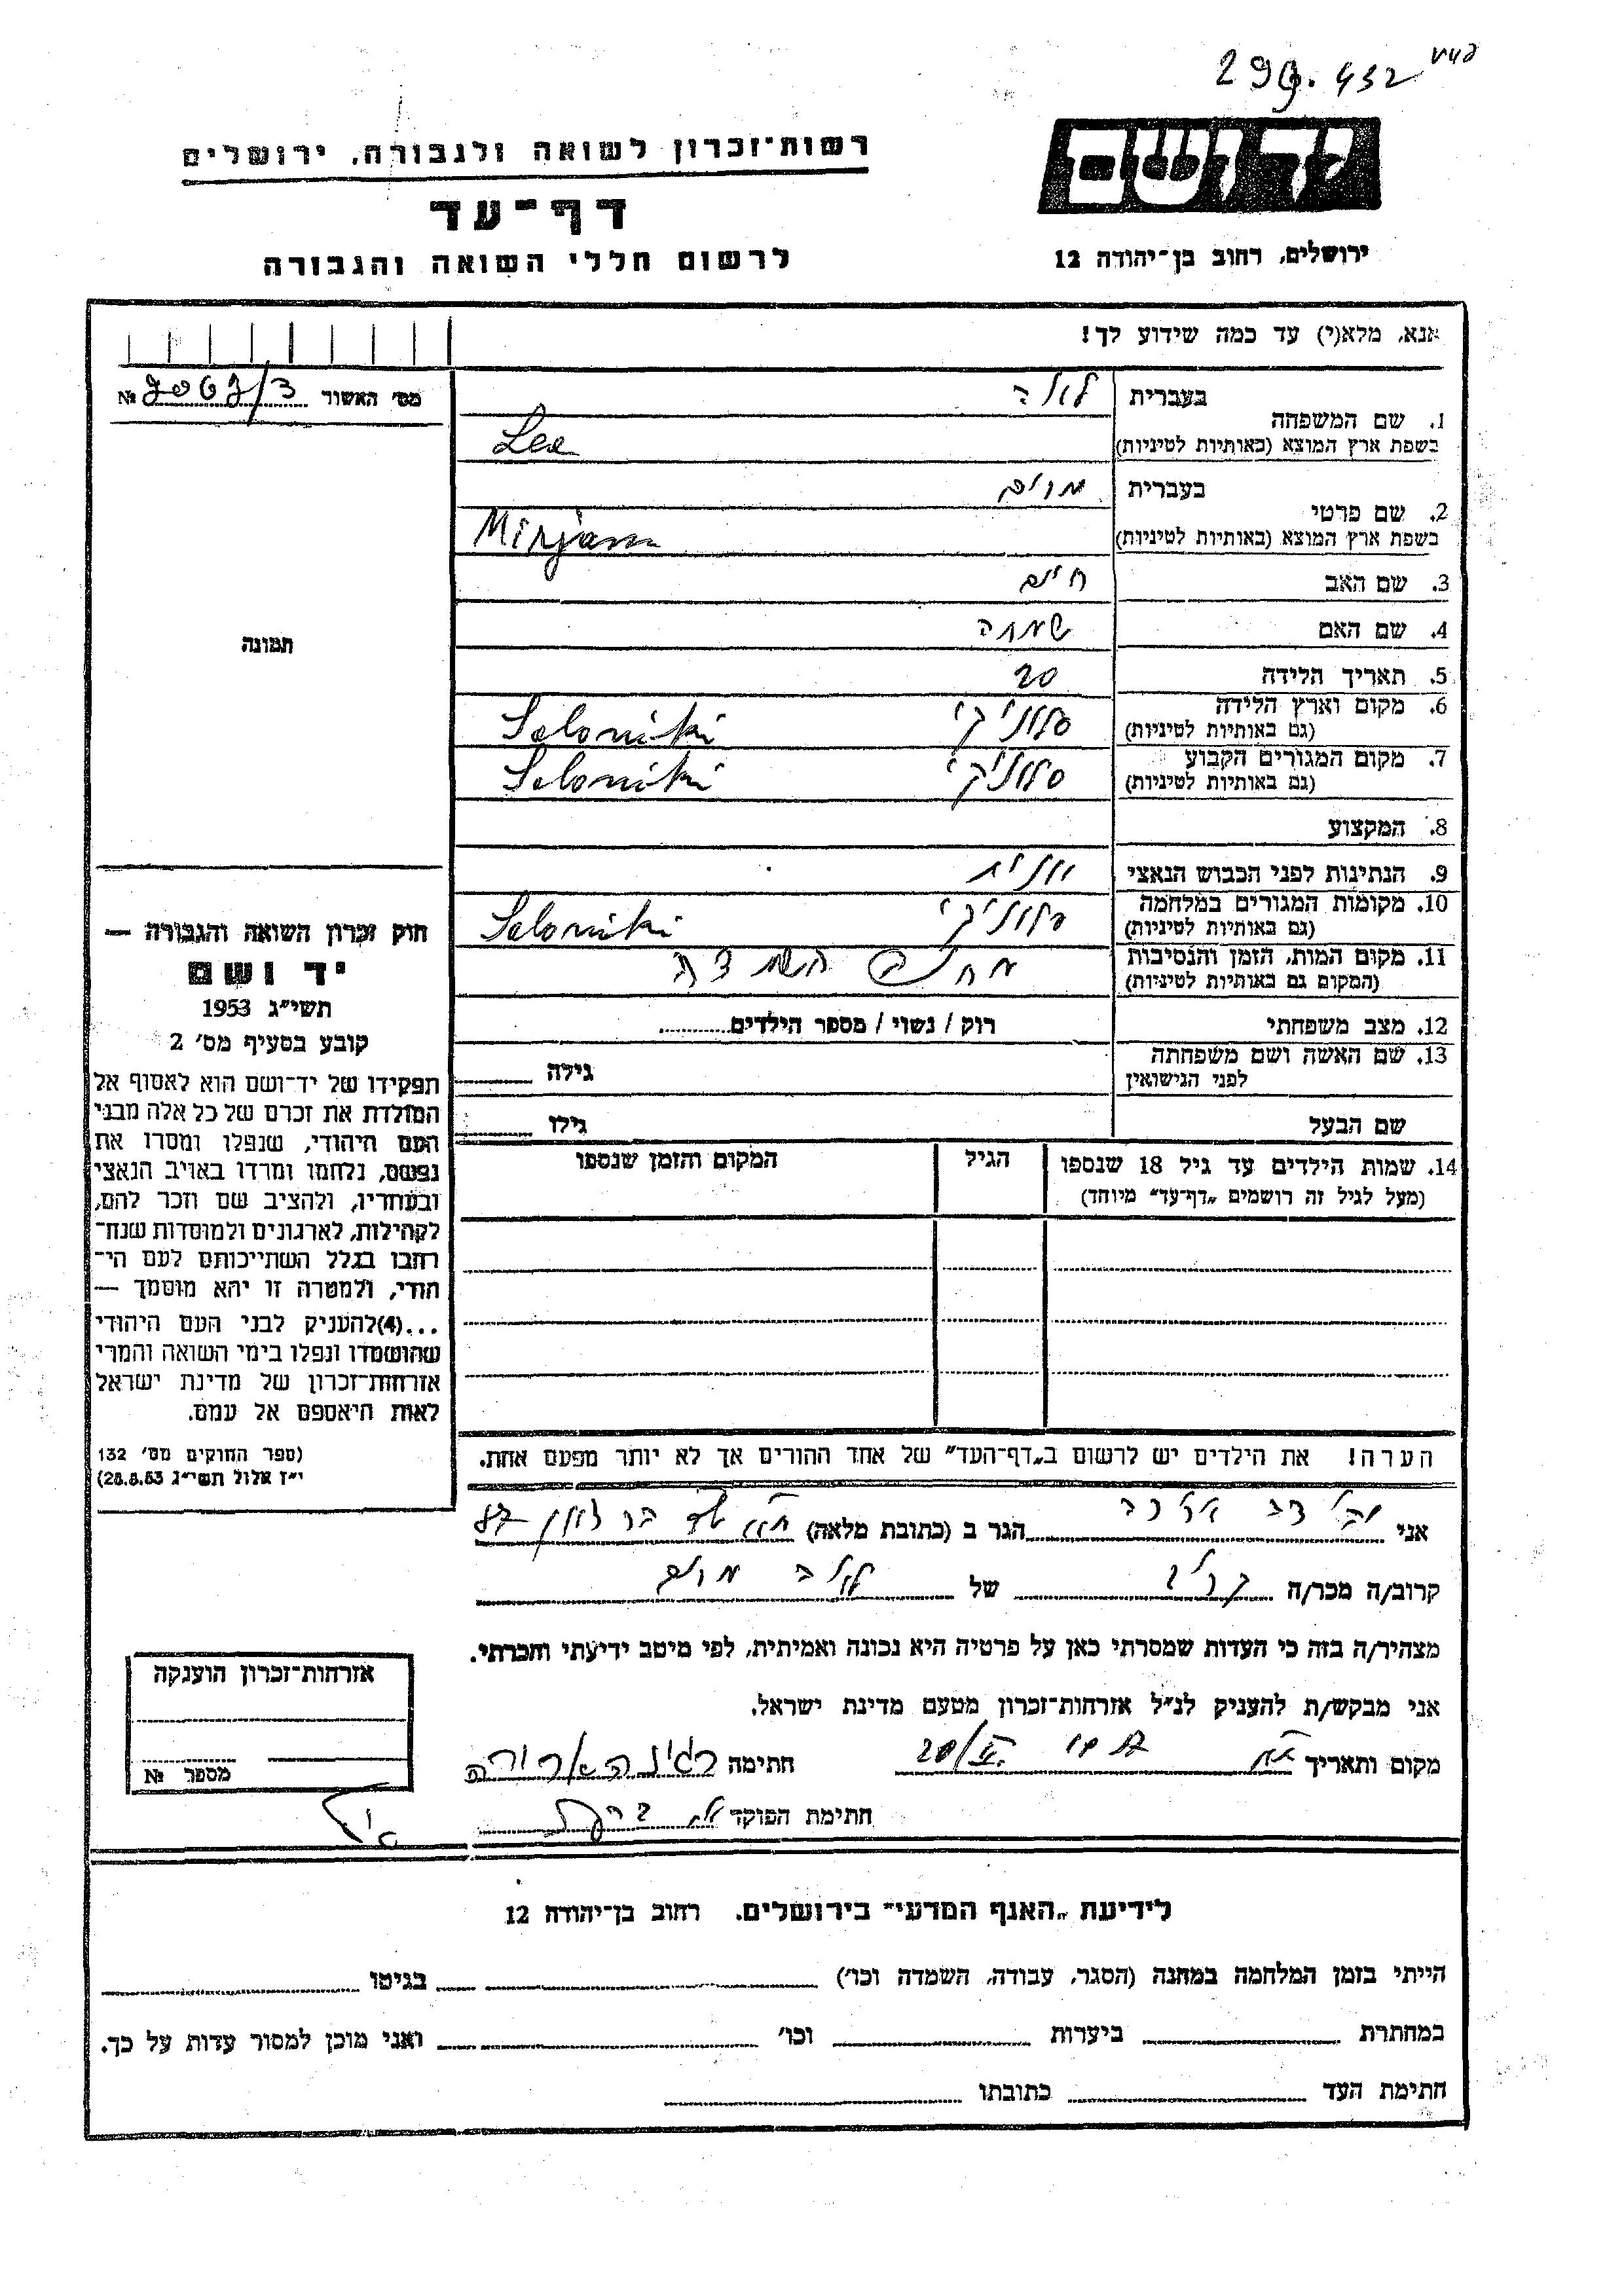 432
רשות־זכרון לשואה ולגבורה, ירושלים
דף־עד
לרשום חללי השואה והגבורה
יד ושם
ירושלים, רחוב בן־יהודה 12
אנא, מלא(י) עד כמה שידוע לך!
מס׳ האשור №
1. שם המשפחה
בעברית
בשפת ארץ המוצא (באותיות לטיניות) Lea
2. שם פרטי
בעברית מרים
בשפת ארץ המוצא (באותיות לטיניות) Mirjam
3. שם האב חיים
4. שם האם שמחה
5. תאריך הלידה 20
6. מקום וארץ הלידה סלוניקי Saloniki
(גם באותיות לטיניות)
7. מקום המגורים הקבוע סלוניקי Saloniki
(גם באותיות לטיניות)
8. המקצוע
9. הנתינות לפני הכבוש הנאצי
10. מקומות המגורים במלחמה סלוניקי Saloniki
(גם באותיות לטיניות)
11. מקום המות, הזמן והנסיבות השמדה
(המקום גם באותיות לטיניות)
12. מצב משפחתי רוק / נשוי / מספר הילדים
13. שם האשה ושם משפחתה
לפני הנישואין גילה
שם הבעל גילו
14. שמות הילדים עד גיל 18 שנספו הגיל המקום והזמן שנספו
(מעל לגיל זה רושמים „דף־עד״ מיוחד)
תמונה
חוק זכרון השואה והגבורה —
יד ושם
תשי״ג 1953
קובע בסעיף מס׳ 2
תפקידו של יד־ושם הוא לאסוף אל
המולדת את זכרם של כל אלה מבני
העם היהודי, שנפלו ומסרו את
נפשם, נלחמו ומרדו באויב הנאצי
ובעוזריו, ולהציב שם וזכר להם,
לקהילות, לארגונים ולמוסדות שנח־
רבו בגלל השתייכותם לעם הי־
הודי, ולמטרה זו יהא מוסמך —
...(4)להעניק לבני העם היהודי
שהושמדו ונפלו בימי השואה והמרי
אזרחות־זכרון של מדינת ישראל
לאות היאספם אל עמם.
(ספר החוקים מס׳ 132
י״ז אלול תשי״ג 28.8.53)
הערה! את הילדים יש לרשום ב„דף־העד״ של אחד ההורים אך לא יותר מפעם אחת.
אני הגר ב (כתובת מלאה)
קרוב/ה מכר/ה של מרים
מצהיר/ה בזה כי העדות שמסרתי כאן על פרטיה היא נכונה ואמיתית, לפי מיטב ידיעתי והכרתי.
אני מבקש/ת להעניק לנ״ל אזרחות־זכרון מטעם מדינת ישראל.
מקום ותאריך חתימה
חתימת הפוקד
אזרחות־זכרון הוענקה
מספר №
לידיעת „האגף המדעי״ בירושלים. רחוב בן־יהודה 12
הייתי בזמן המלחמה במחנה (הסגר, עבודה, השמדה וכו׳) בגיטו
במחתרת ביערות וכו׳ ואני מוכן למסור עדות על כך.
חתימת העד כתובתו